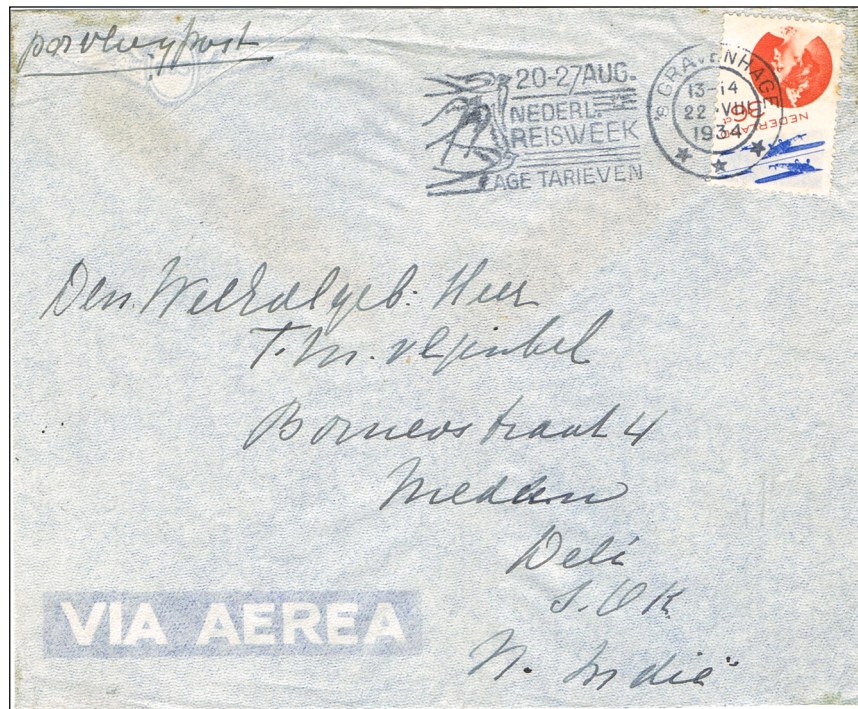 per vliegpost
20-27 AUG.
NEDERL.
REISWEEK
LAGE TARIEVEN
'S GRAVENHAGE
13-14
22 VIII
1934
36
NEDERLAND
Den WelEdelgeb. Heer
T. M.
Borneostraat 4
Medan
Deli
S.O.K.
N. Indië
VIA AEREA